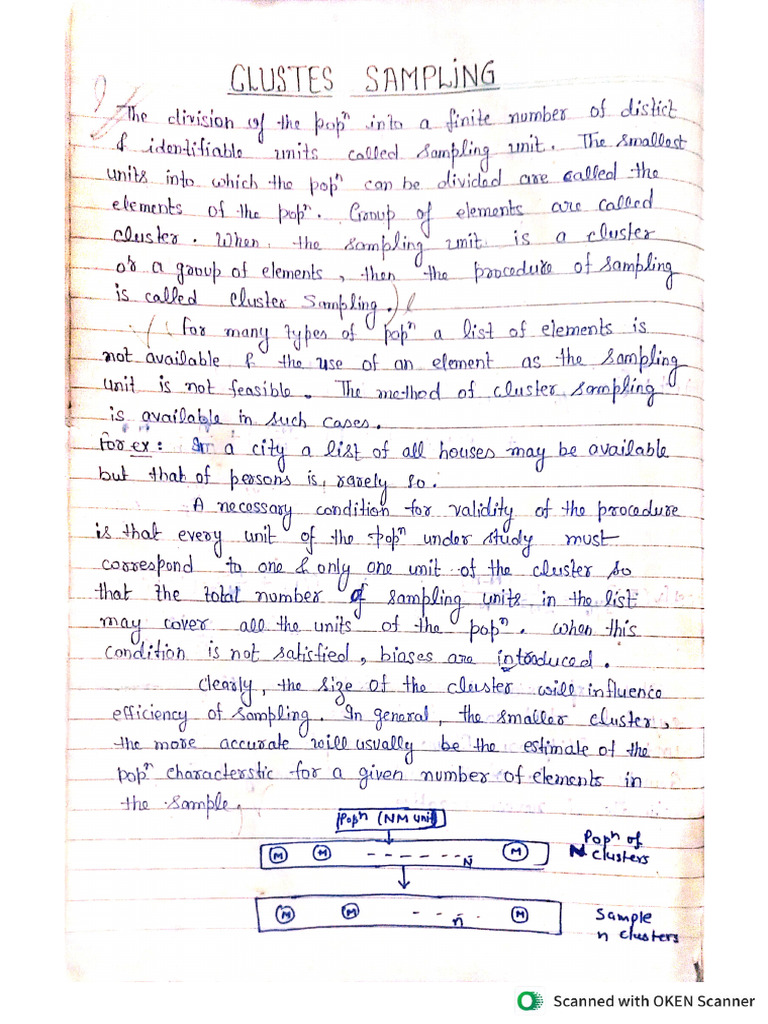 CLUSTES SAMPLING
The division of the popⁿ into a finite number of distict
& identifiable units called sampling unit. The smallest
units into which the popⁿ can be divided are called the
elements of the popⁿ. Group of elements are called
cluster. When the sampling unit is a cluster
or a group of elements, then the procedure of sampling
is called cluster sampling.
For many types of popⁿ a list of elements is
not available & the use of an element as the sampling
unit is not feasible. The method of cluster sampling
is available in such cases.
For ex: In a city a list of all houses may be available
but that of persons is, rarely so.
A necessary condition for validity of the procedure
is that every unit of the popⁿ under study must
correspond to one & only one unit of the cluster so
that the total number of sampling units in the list
may cover all the units of the popⁿ. When this
condition is not satisfied, biases are introduced.
Clearly, the size of the cluster will influence
efficiency of sampling. In general, the smaller cluster,
the more accurate will usually be the estimate of the
popⁿ characterstic for a given number of elements in
the sample.
Popⁿ (NM unit)
M M - - - - - - N M
Popⁿ of
N clusters
M M - - - n M
Sample
n clusters
Scanned with OKEN Scanner